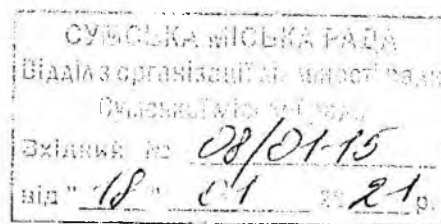 СУМСЬКА МІСЬКА РАДА
Відділ з організації діяльності ради
Сумської міської ради
Вхідний № 08/01-15
від "18" 01 2021 р.